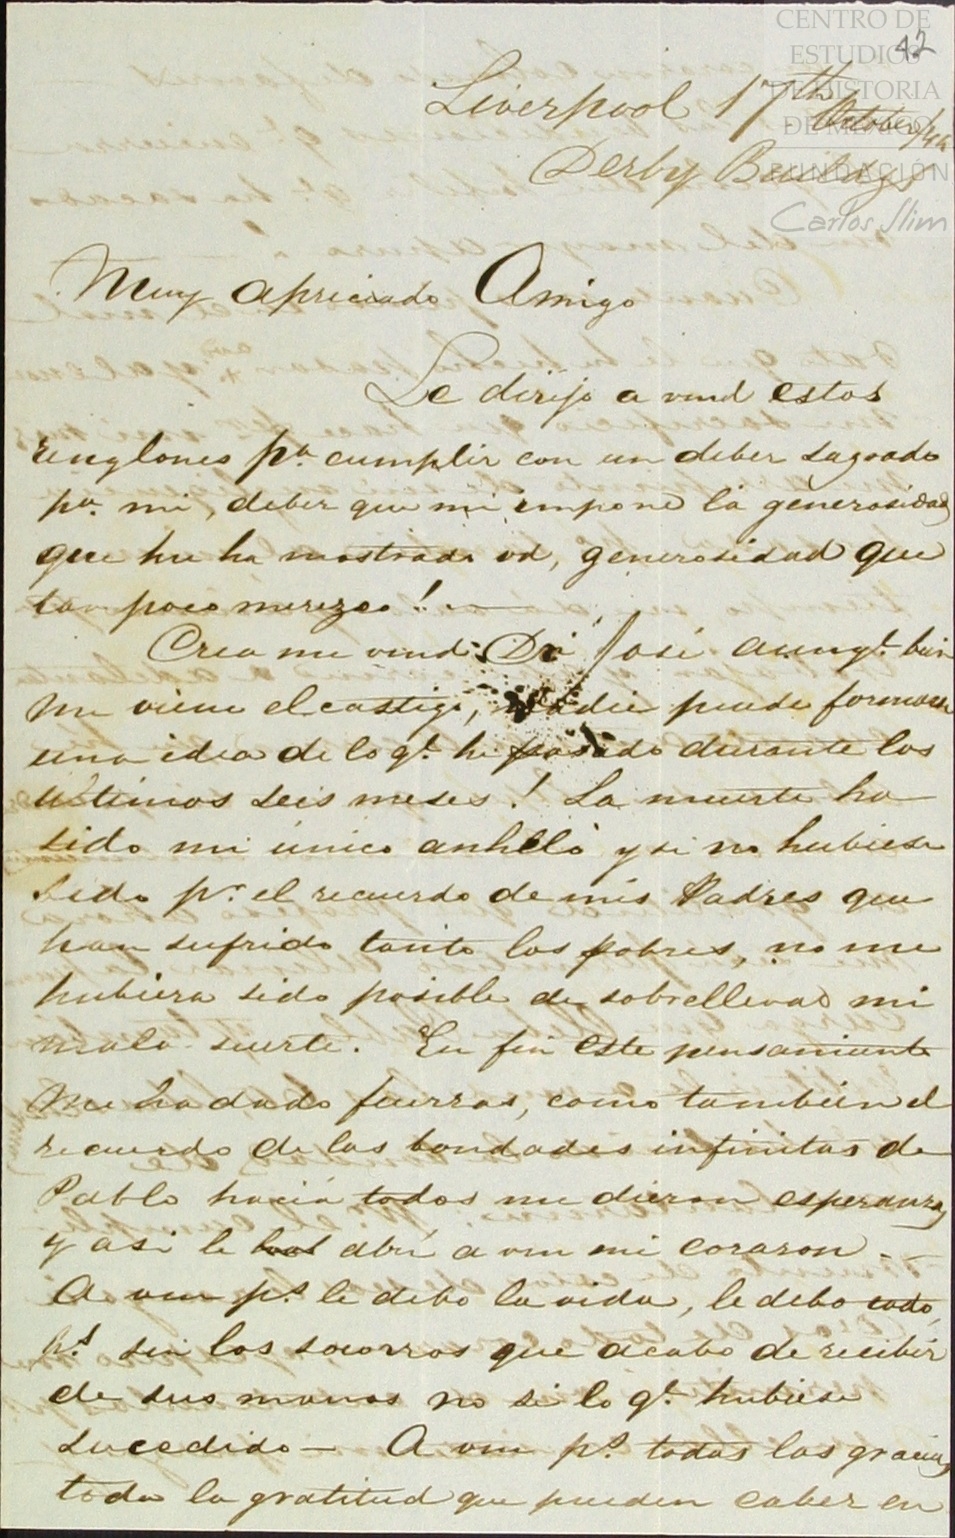 CENTRO DE
ESTUDIOS
DE HISTORIA
DE MÉXICO
FUNDACIÓN
Carlos Slim
42
Liverpool 17th October
Derby Buildgs
Muy apreciado Amigo
Le dirijo a vmd estos
renglones pa. cumplir con un deber sagrado
pa. mi, deber que mi impone la generosidad
que me ha mostrado vd, generosidad que
tan poco merezco! —
Crea me vmd Dn José aunqe. bien
me viene el castigo, nadie puede formarse
una idea de lo qe. he pasado durante los
ultimos seis meses! La muerte ha
sido mi único anhelo y si no hubiese
sido pr. el recuerdo de mis Padres que
han sufrido tanto los pobres, no me
hubiera sido posible de sobrellevar mi
mala suerte. En fin este pensamiento
me ha dado fuerzas, como tambien el
recuerdo de las bondades infinitas de
Pablo hacia todos me dieron esperanza
y asi le abrí a vm mi corazon —
A vm ps. le debo la vida, le debo todo,
ps. sin los socorros que acabo de recibir
de sus manos no se lo qe. hubiese
sucedido — A vm ps. todas las gracias
toda la gratitud que pueden caber en